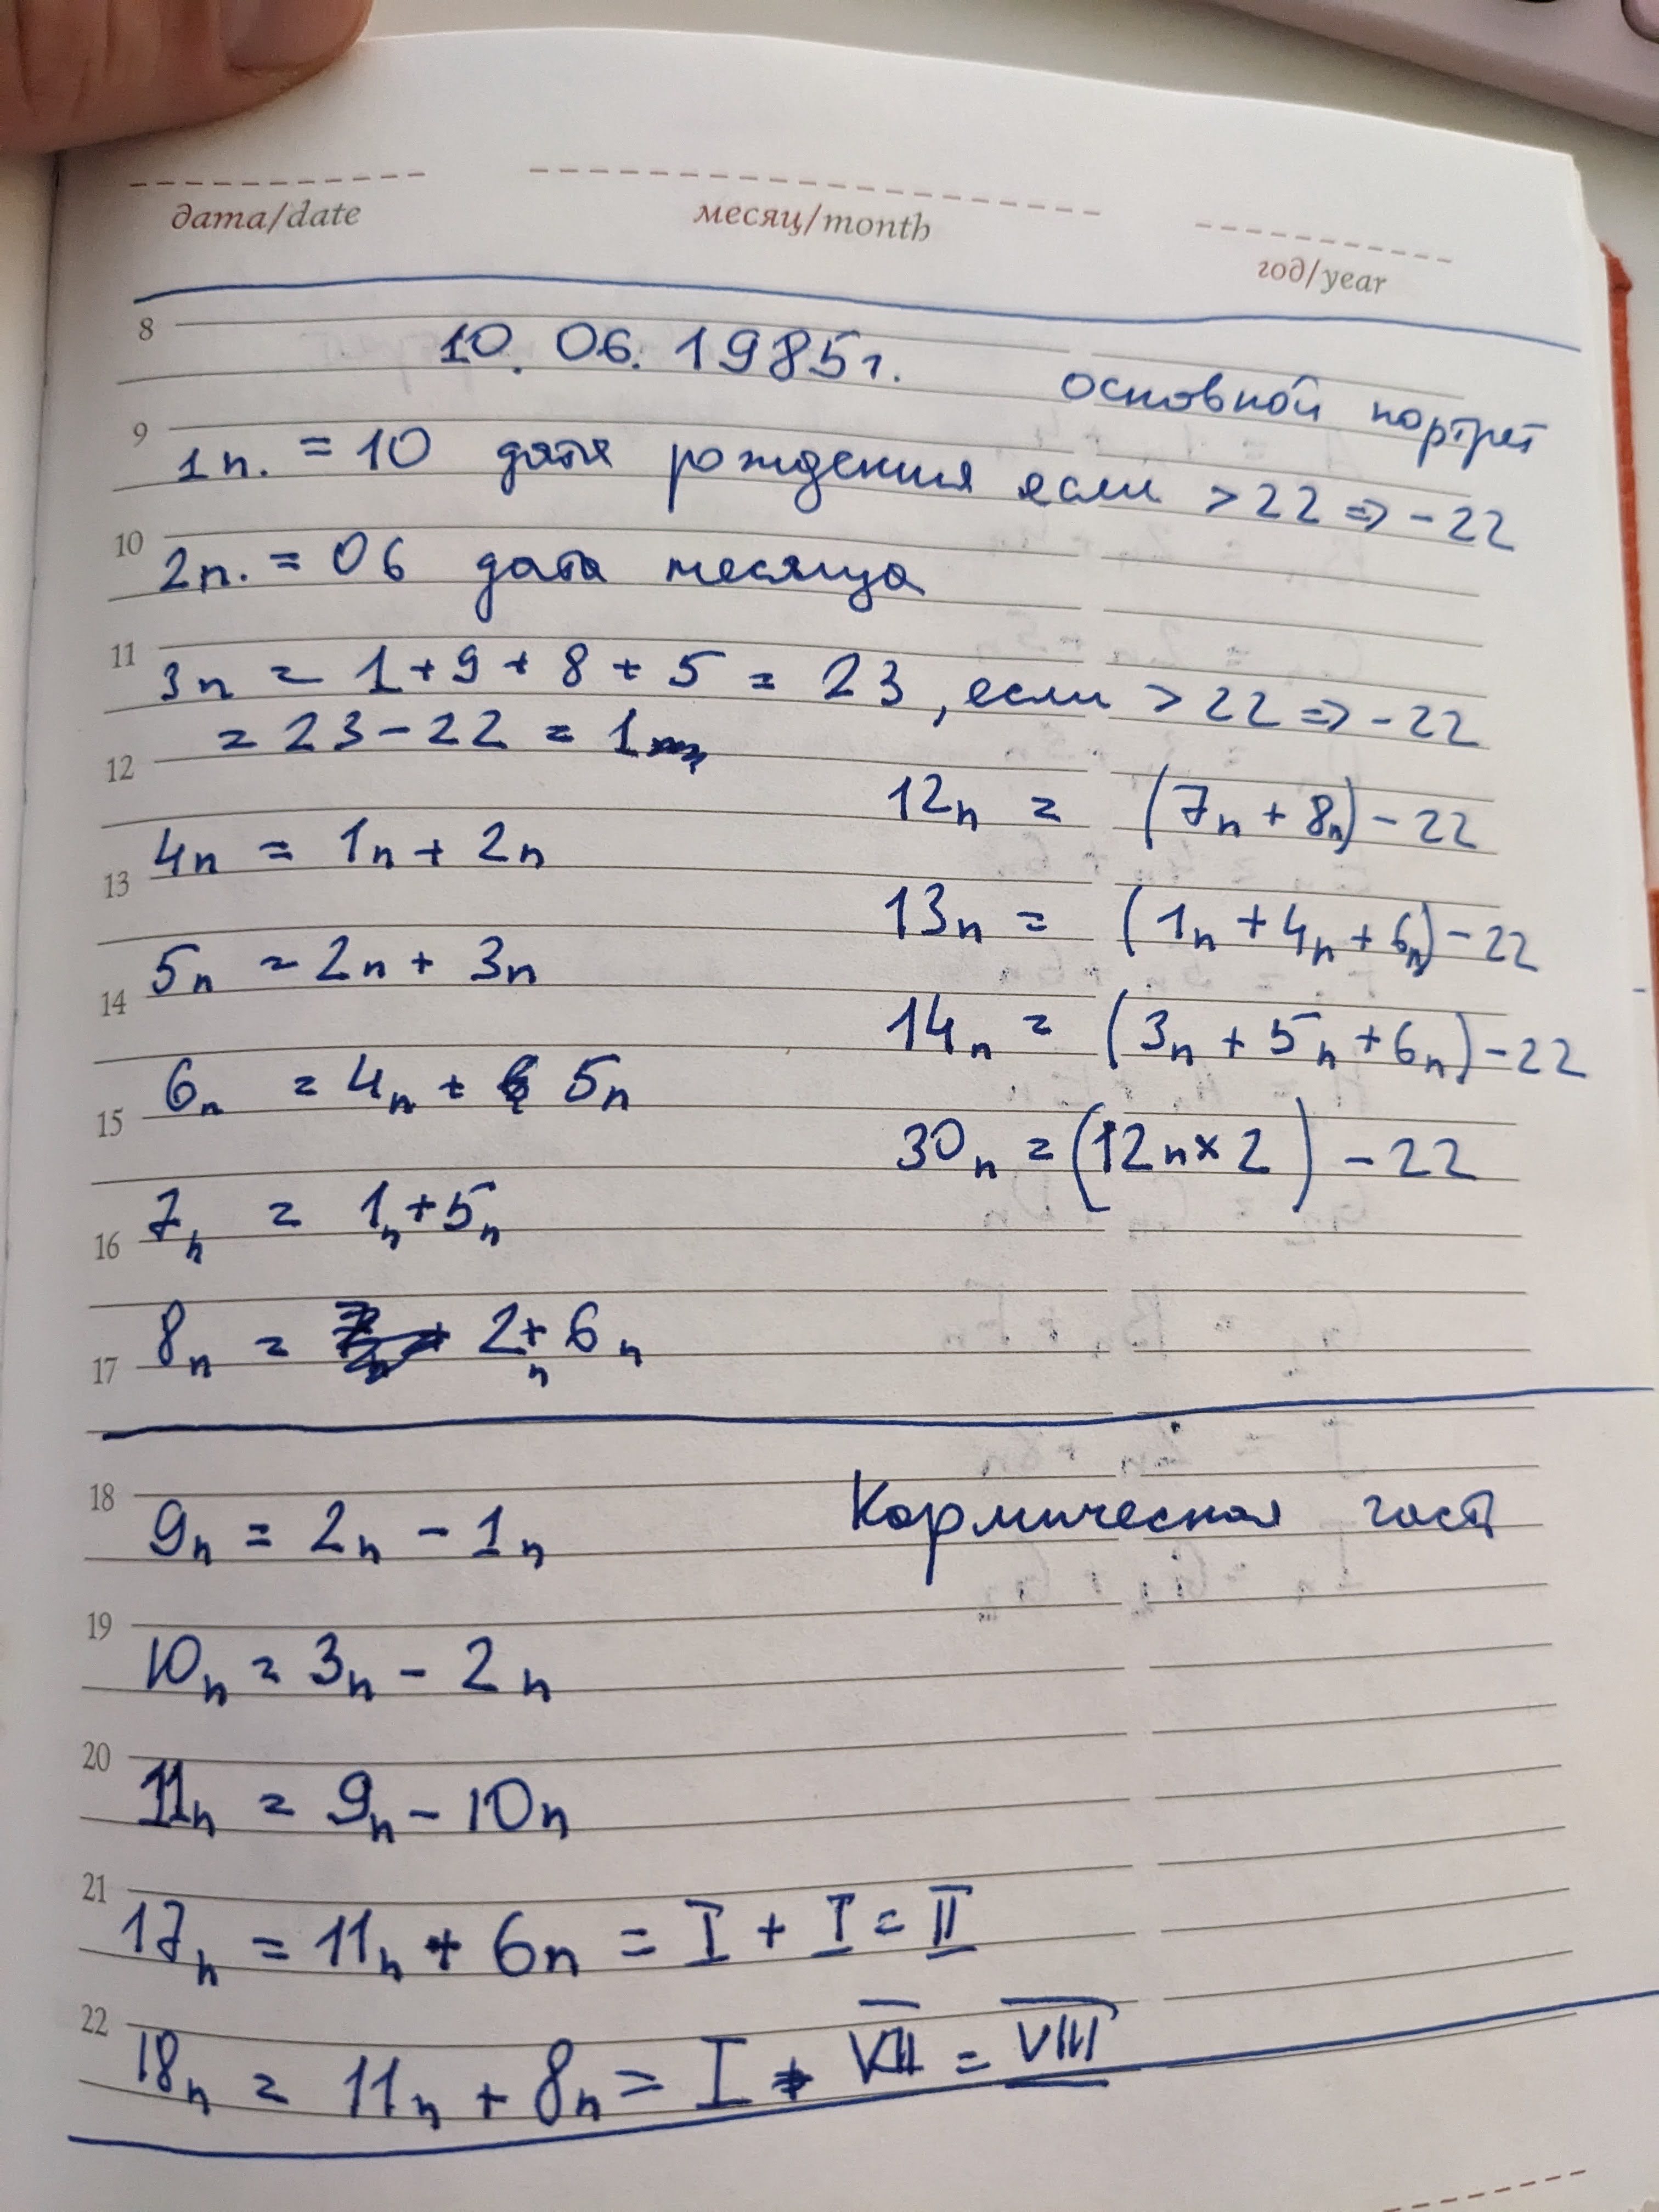 дата/date месяц/month год/year
8
10. 06. 1985г. основной портрет
9
1п. = 10 дата рождения если > 22 => - 22
10
2п. = 06 дата месяца
11
3п = 1 + 9 + 8 + 5 = 23, если > 22 => - 22
= 23 - 22 = 1
12
4п = 1п + 2п
13
5п = 2п + 3п
14
6п = 4п + 5п
15
7п = 1п + 5п
16
8п = 2п + 6п
17
12п = (7п + 8п) - 22
13п = (1п + 4п + 6п) - 22
14п = (3п + 5п + 6п) - 22
30п = (12п x 2) - 22
18
9п = 2п - 1п Кармическая часть
19
10п = 3п - 2п
20
11п = 9п - 10п
21
17п = 11п + 6п = I + I = II
22
18п = 11п + 8п = I + VII = VIII